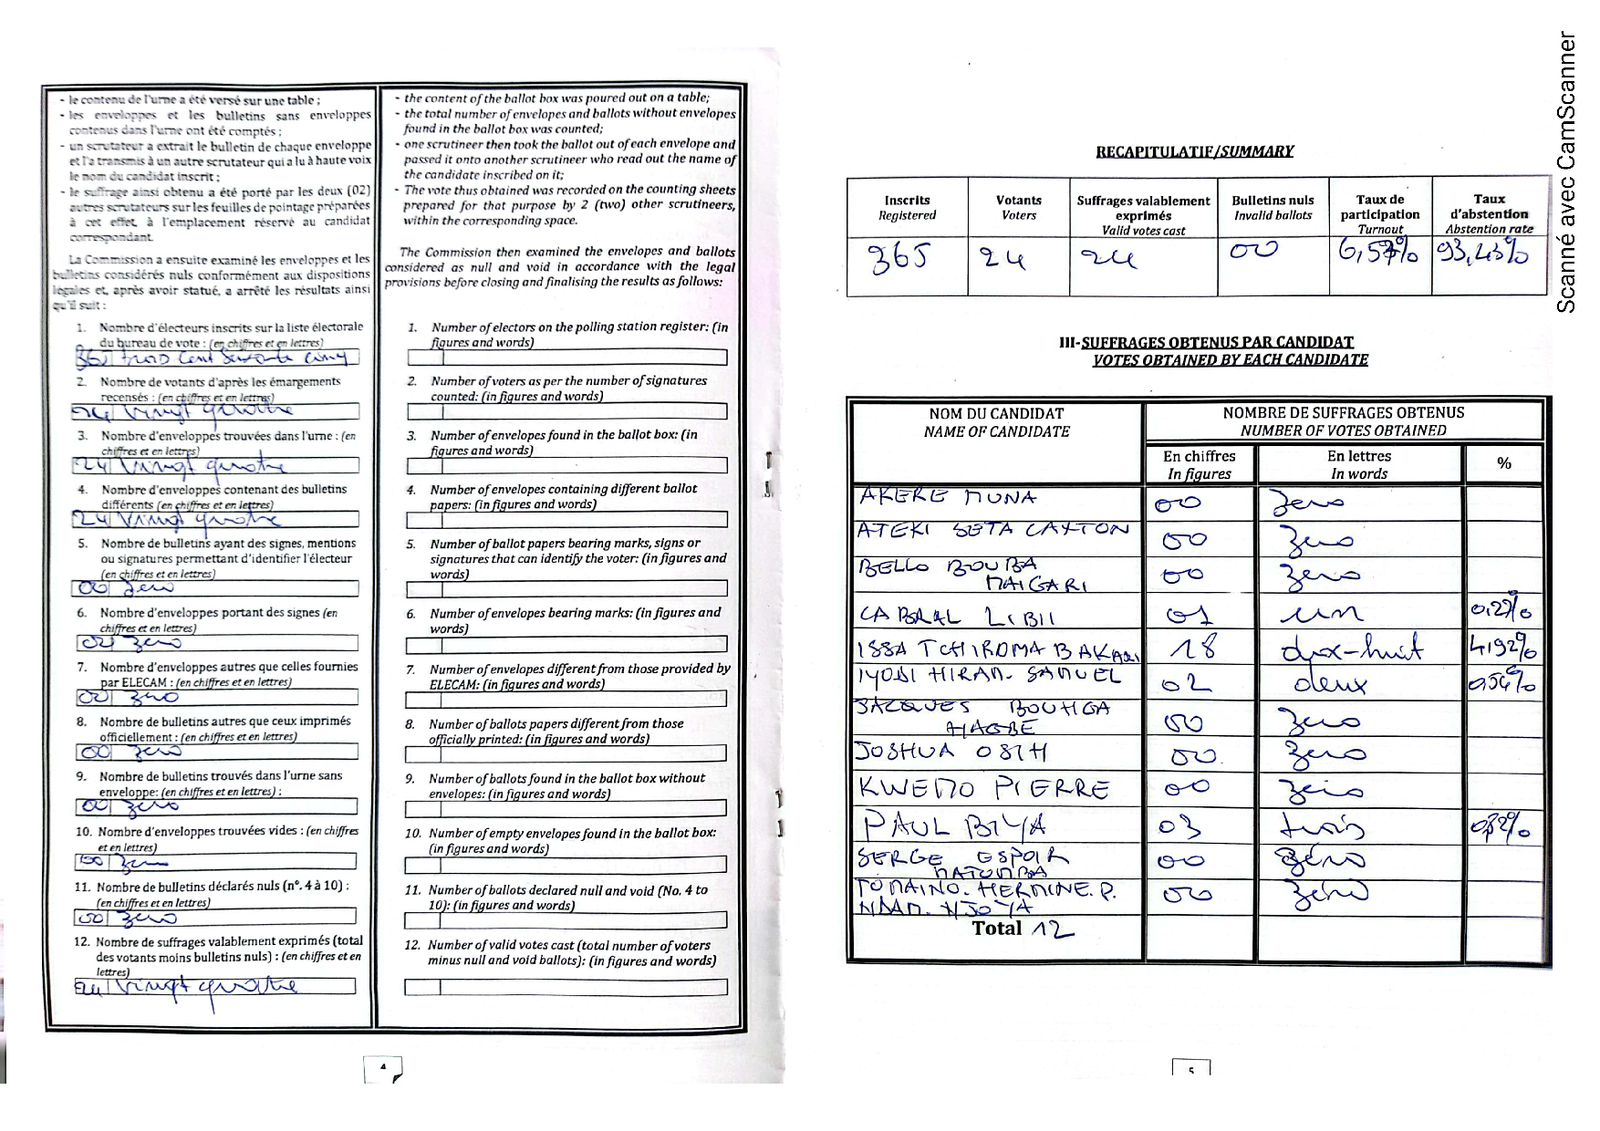 - le contenu de l'urne a été versé sur une table ;
- les enveloppes et les bulletins sans enveloppes
contenus dans l'urne ont été comptés ;
- un scrutateur a extrait le bulletin de chaque enveloppe
et l'a transmis à un autre scrutateur qui a lu à haute voix
le nom du candidat inscrit ;
- le suffrage ainsi obtenu a été porté par les deux (02)
autres scrutateurs sur les feuilles de pointage préparées
à cet effet, à l'emplacement réservé au candidat
correspondant.
La Commission a ensuite examiné les enveloppes et les
bulletins considérés nuls conformément aux dispositions
légales et, après avoir statué, a arrêté les résultats ainsi
qu'il suit :
1. Nombre d'électeurs inscrits sur la liste électorale
du bureau de vote : (en chiffres et en lettres)
365 trois cent soixante cinq
2. Nombre de votants d'après les émargements
recensés : (en chiffres et en lettres)
24 vingt quatre
3. Nombre d'enveloppes trouvées dans l'urne : (en
chiffres et en lettres)
24 vingt quatre
4. Nombre d'enveloppes contenant des bulletins
différents (en chiffres et en lettres)
24 vingt quatre
5. Nombre de bulletins ayant des signes, mentions
ou signatures permettant d'identifier l'électeur
(en chiffres et en lettres)
00 zero
6. Nombre d'enveloppes portant des signes (en
chiffres et en lettres)
zero
7. Nombre d'enveloppes autres que celles fournies
par ELECAM : (en chiffres et en lettres)
00 zero
8. Nombre de bulletins autres que ceux imprimés
officiellement : (en chiffres et en lettres)
00 zero
9. Nombre de bulletins trouvés dans l'urne sans
enveloppe: (en chiffres et en lettres) :
00 zero
10. Nombre d'enveloppes trouvées vides : (en chiffres
et en lettres)
00 zero
11. Nombre de bulletins déclarés nuls (n°. 4 à 10) :
(en chiffres et en lettres)
00 zero
12. Nombre de suffrages valablement exprimés (total
des votants moins bulletins nuls) : (en chiffres et en
lettres)
24 vingt quatre
- the content of the ballot box was poured out on a table;
- the total number of envelopes and ballots without envelopes
found in the ballot box was counted;
- one scrutineer then took the ballot out of each envelope and
passed it onto another scrutineer who read out the name of
the candidate inscribed on it;
- The vote thus obtained was recorded on the counting sheets
prepared for that purpose by 2 (two) other scrutineers,
within the corresponding space.
The Commission then examined the envelopes and ballots
considered as null and void in accordance with the legal
provisions before closing and finalising the results as follows:
1. Number of electors on the polling station register: (in
figures and words)
2. Number of voters as per the number of signatures
counted: (in figures and words)
3. Number of envelopes found in the ballot box: (in
figures and words)
4. Number of envelopes containing different ballot
papers: (in figures and words)
5. Number of ballot papers bearing marks, signs or
signatures that can identify the voter: (in figures and
words)
6. Number of envelopes bearing marks: (in figures and
words)
7. Number of envelopes different from those provided by
ELECAM: (in figures and words)
8. Number of ballots papers different from those
officially printed: (in figures and words)
9. Number of ballots found in the ballot box without
envelopes: (in figures and words)
10. Number of empty envelopes found in the ballot box:
(in figures and words)
11. Number of ballots declared null and void (No. 4 to
10): (in figures and words)
12. Number of valid votes cast (total number of voters
minus null and void ballots): (in figures and words)
4
RECAPITULATIF/SUMMARY
Inscrits Votants Suffrages valablement Bulletins nuls Taux de Taux
Registered Voters exprimés Invalid ballots participation d'abstention
Valid votes cast Turnout Abstention rate
365 24 24 00 6,57% 93,43%
III-SUFFRAGES OBTENUS PAR CANDIDAT
VOTES OBTAINED BY EACH CANDIDATE
NOM DU CANDIDAT NOMBRE DE SUFFRAGES OBTENUS
NAME OF CANDIDATE NUMBER OF VOTES OBTAINED
En chiffres En lettres %
In figures In words
AKERE MUNA 00 zero
ATEKI SETA CAXTON 00 zero
BELLO BOUBA
MAIGARI 00 zero
CABRAL LIBII 01 un 0,27%
ISSA TCHIROMA BAKARI 18 dix-huit 4,92%
IYODI HIRAM. SAMUEL 02 deux 0,54%
JACQUES BOUHGA
HAGBE 00 zero
JOSHUA OSIH 00 zero
KWEMO PIERRE 00 zero
PAUL BIYA 03 trois 0,82%
SERGE ESPOIR
MATOMBA 00 zéro
TOMAINO. HERMINE. P.
NDAM. NJOYA 00 zéro
Total 12
5
Scanné avec CamScanner